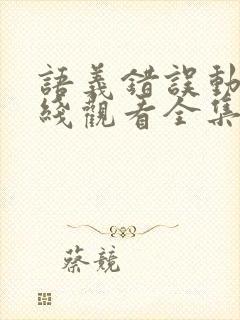 語義錯誤動
綫觀看全集
蔡競